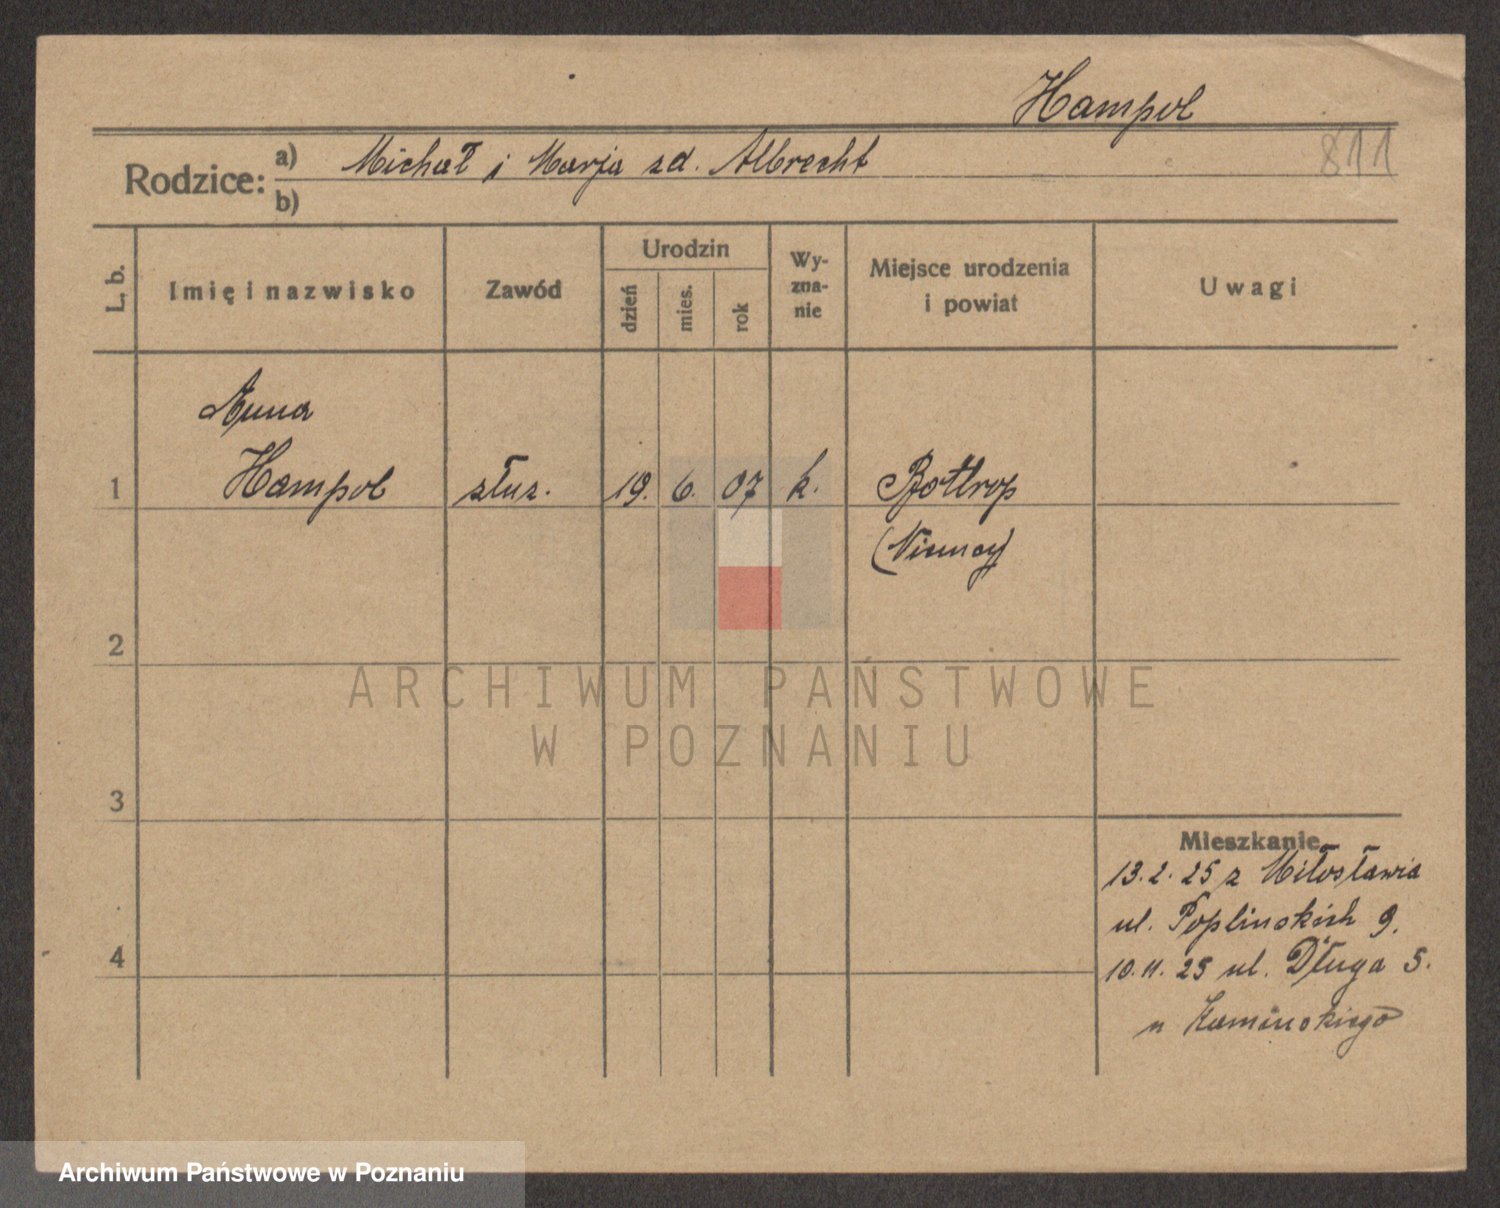 Hampol
811
Rodzice: a) Michał i Marja zd. Albrecht
b)
L. b.
Imię i nazwisko
Zawód
Urodzin
dzień
mies.
rok
Wy-
zna-
nie
Miejsce urodzenia
i powiat
Uwagi
Anna
1 Hampol służ. 19. 6. 07 k. Bottrop
(Niemcy)
2
3
4
ARCHIWUM PAŃSTWOWE
W POZNANIU
Mieszkanie
13.2.25 z Miłosławia
ul. Poplińskich 9.
10.11.25 ul. Długa 5.
u Kamińskiego
Archiwum Państwowe w Poznaniu